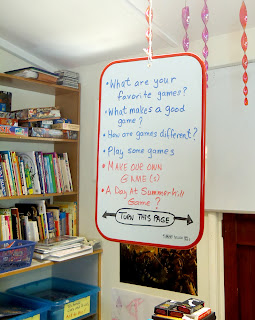 • What are your
favorite games?
• What makes a good
game?
• How are games different?
• Play some games
• MAKE OUR OWN
GAME(S)
• A DAY AT SUMMERHILL
GAME?
TURN THIS PAGE